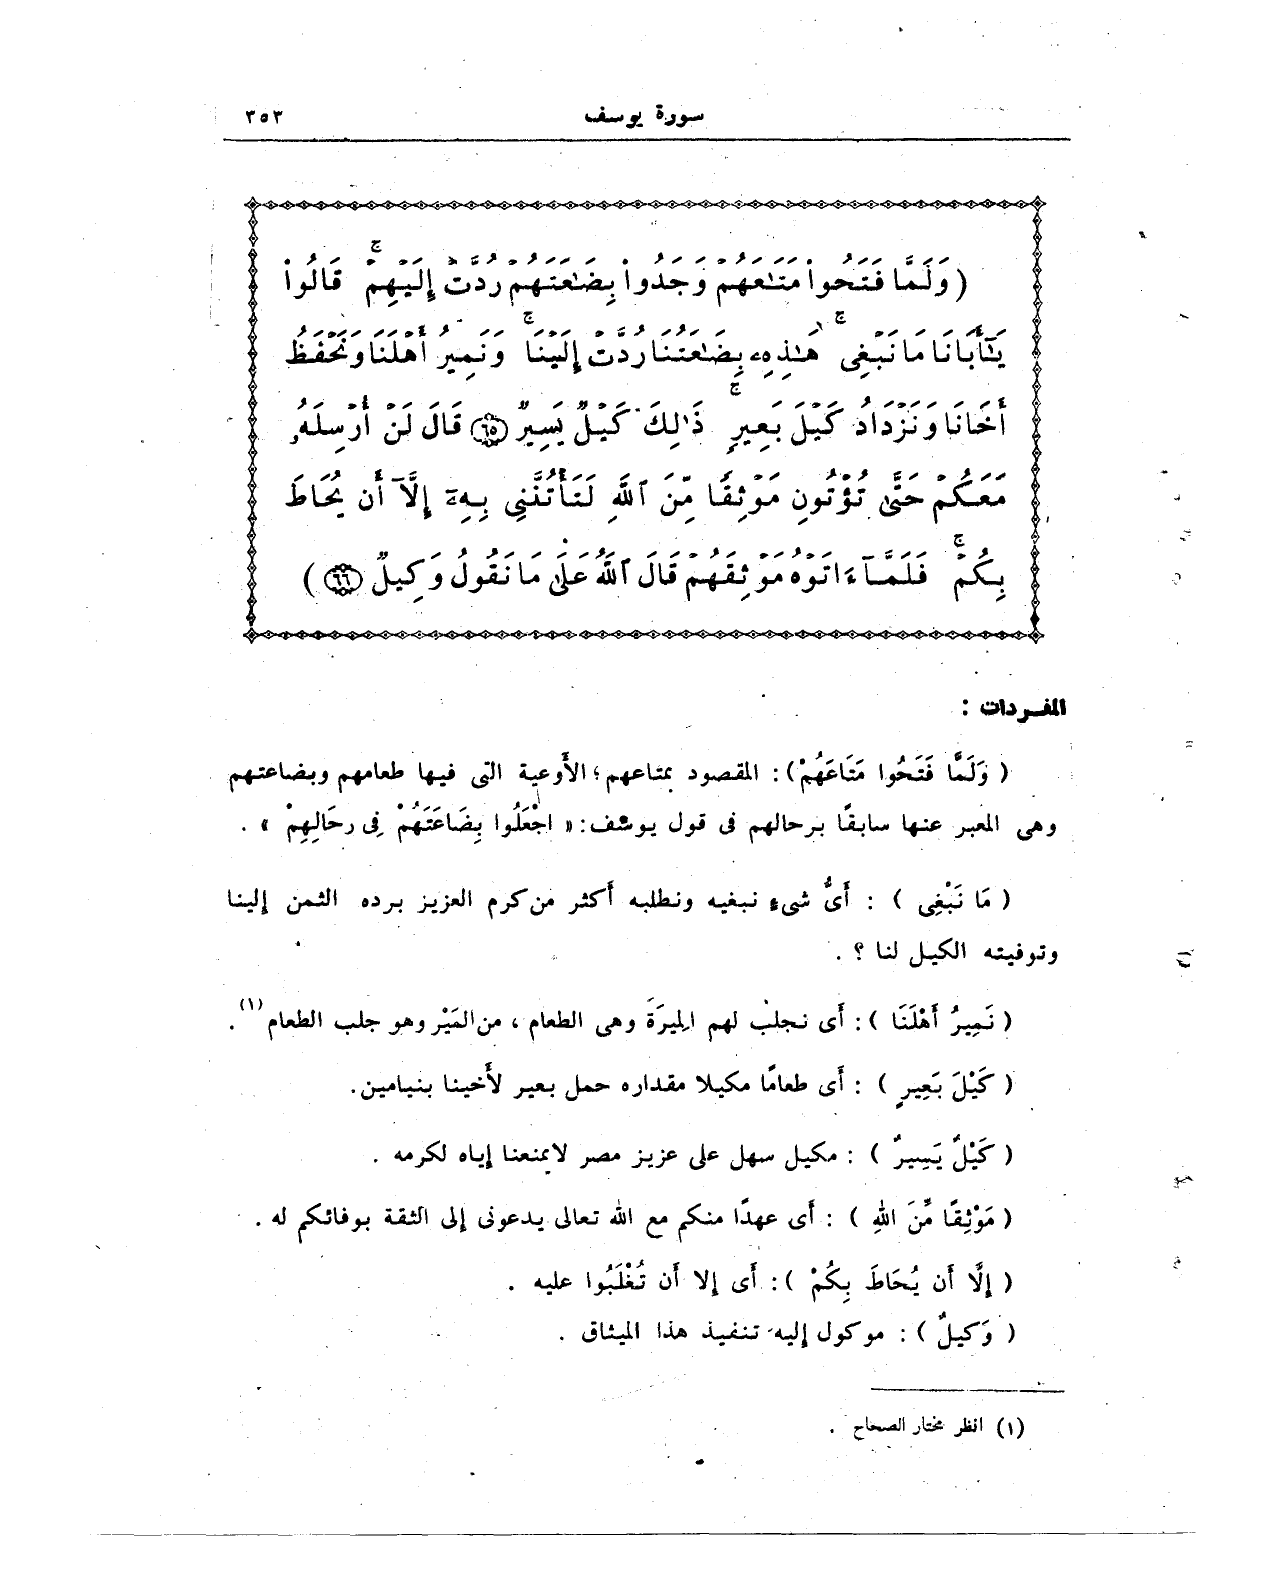 سورة يوسف ٣٥٣
( وَلَمَّا فَتَحُوا۟ مَتَـٰعَهُمْ وَجَدُوا۟ بِضَـٰعَتَهُمْ رُدَّتْ إِلَيْهِمْ ۚ قَالُوا۟
يَـٰٓأَبَانَا مَا نَبْغِى ۖ هَـٰذِهِۦ بِضَـٰعَتُنَا رُدَّتْ إِلَيْنَا ۖ وَنَمِيرُ أَهْلَنَا وَنَحْفَظُ
أَخَانَا وَنَزْدَادُ كَيْلَ بَعِيرٍ ۖ ذَٰلِكَ كَيْلٌ يَسِيرٌ ٦٥ قَالَ لَنْ أُرْسِلَهُۥ
مَعَكُمْ حَتَّىٰ تُؤْتُونِ مَوْثِقًا مِّنَ ٱللَّهِ لَتَأْتُنَّنِى بِهِۦٓ إِلَّآ أَن يُحَاطَ
بِكُمْ ۖ فَلَمَّآ ءَاتَوْهُ مَوْثِقَهُمْ قَالَ ٱللَّهُ عَلَىٰ مَا نَقُولُ وَكِيلٌ ٦٦ )
المفـردات :
( وَلَمَّا فَتَحُوا مَتَاعَهُمْ ) : المقصود بمتاعهم ؛ الأَوعية التى فيها طعامهم وبضاعتهم
وهى المعبر عنها سابقًا برحالهم فى قول يوسف : « اجْعَلُوا بِضَاعَتَهُمْ فِى رِحَالِهِمْ » .
( مَا نَبْغِى ) : أَىُّ شىءٍ نبغيه ونطلبه أكثر من كرم العزيز برده الثمن إلينا
وتوفيته الكيل لنا ؟ .
( نَمِيرُ أَهْلَنَا ) : أَى نجلب لهم المِيرَة وهى الطعام ، من المَيْر وهو جلب الطعام (١) .
( كَيْلَ بَعِيرٍ ) : أَى طعامًا مكيلا مقداره حمل بعير لأَخينا بنيامين.
( كَيْلٌ يَسِيرٌ ) : مكيل سهل على عزيز مصر لا يمنعنا إياه لكرمه .
( مَوْثِقًا مِّنَ اللهِ ) : أَى عهدًا منكم مع الله تعالى يدعونى إلى الثقة بوفائكم له .
( إِلَّا أَن يُحَاطَ بِكُمْ ) : أَى إلا أَن تُغْلَبُوا عليه .
( وَكِيلٌ ) : موكول إليه تنفيذ هذا الميثاق .
(١) انظر مختار الصحاح .